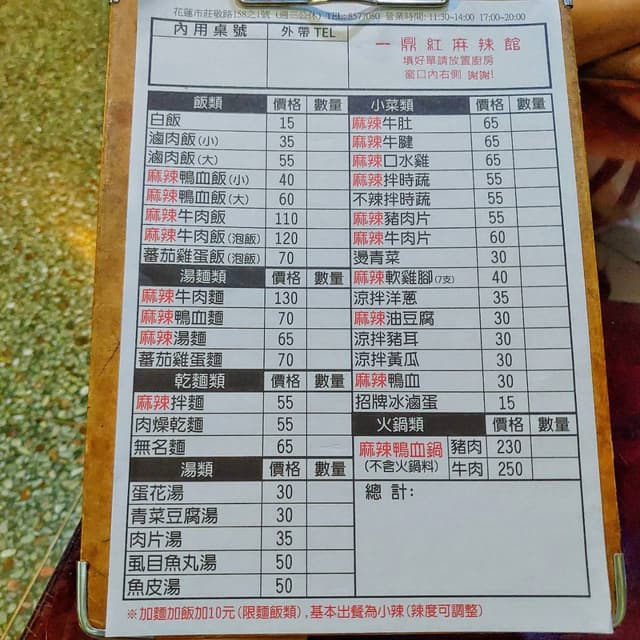 花蓮市莊敬路158之1號（週三公休）TEL: 8577080 營業時間: 11:30~14:00 17:00~20:00
內用桌號 外帶TEL
一鼎紅麻辣館
填好單請放置廚房
窗口內右側 謝謝!
飯類 價格 數量
白飯 15
滷肉飯(小) 35
滷肉飯(大) 55
麻辣鴨血飯(小) 40
麻辣鴨血飯(大) 60
麻辣牛肉飯 110
麻辣牛肉飯(泡飯) 120
蕃茄雞蛋飯(泡飯) 70
湯麵類 價格 數量
麻辣牛肉麵 130
麻辣鴨血麵 70
麻辣湯麵 65
蕃茄雞蛋麵 70
乾麵類 價格 數量
麻辣拌麵 55
肉燥乾麵 55
無名麵 65
湯類 價格 數量
蛋花湯 30
青菜豆腐湯 30
肉片湯 35
虱目魚丸湯 50
魚皮湯 50
小菜類 價格 數量
麻辣牛肚 65
麻辣牛腱 65
麻辣口水雞 65
麻辣拌時蔬 55
不辣拌時蔬 55
麻辣豬肉片 55
麻辣牛肉片 60
燙青菜 30
麻辣軟雞腳(7支) 40
涼拌洋蔥 35
麻辣油豆腐 30
涼拌豬耳 30
涼拌黃瓜 30
麻辣鴨血 30
招牌冰滷蛋 15
火鍋類 價格 數量
麻辣鴨血鍋 豬肉 230
(不含火鍋料) 牛肉 250
總計:
※加麵加飯加10元(限麵飯類),基本出餐為小辣(辣度可調整)